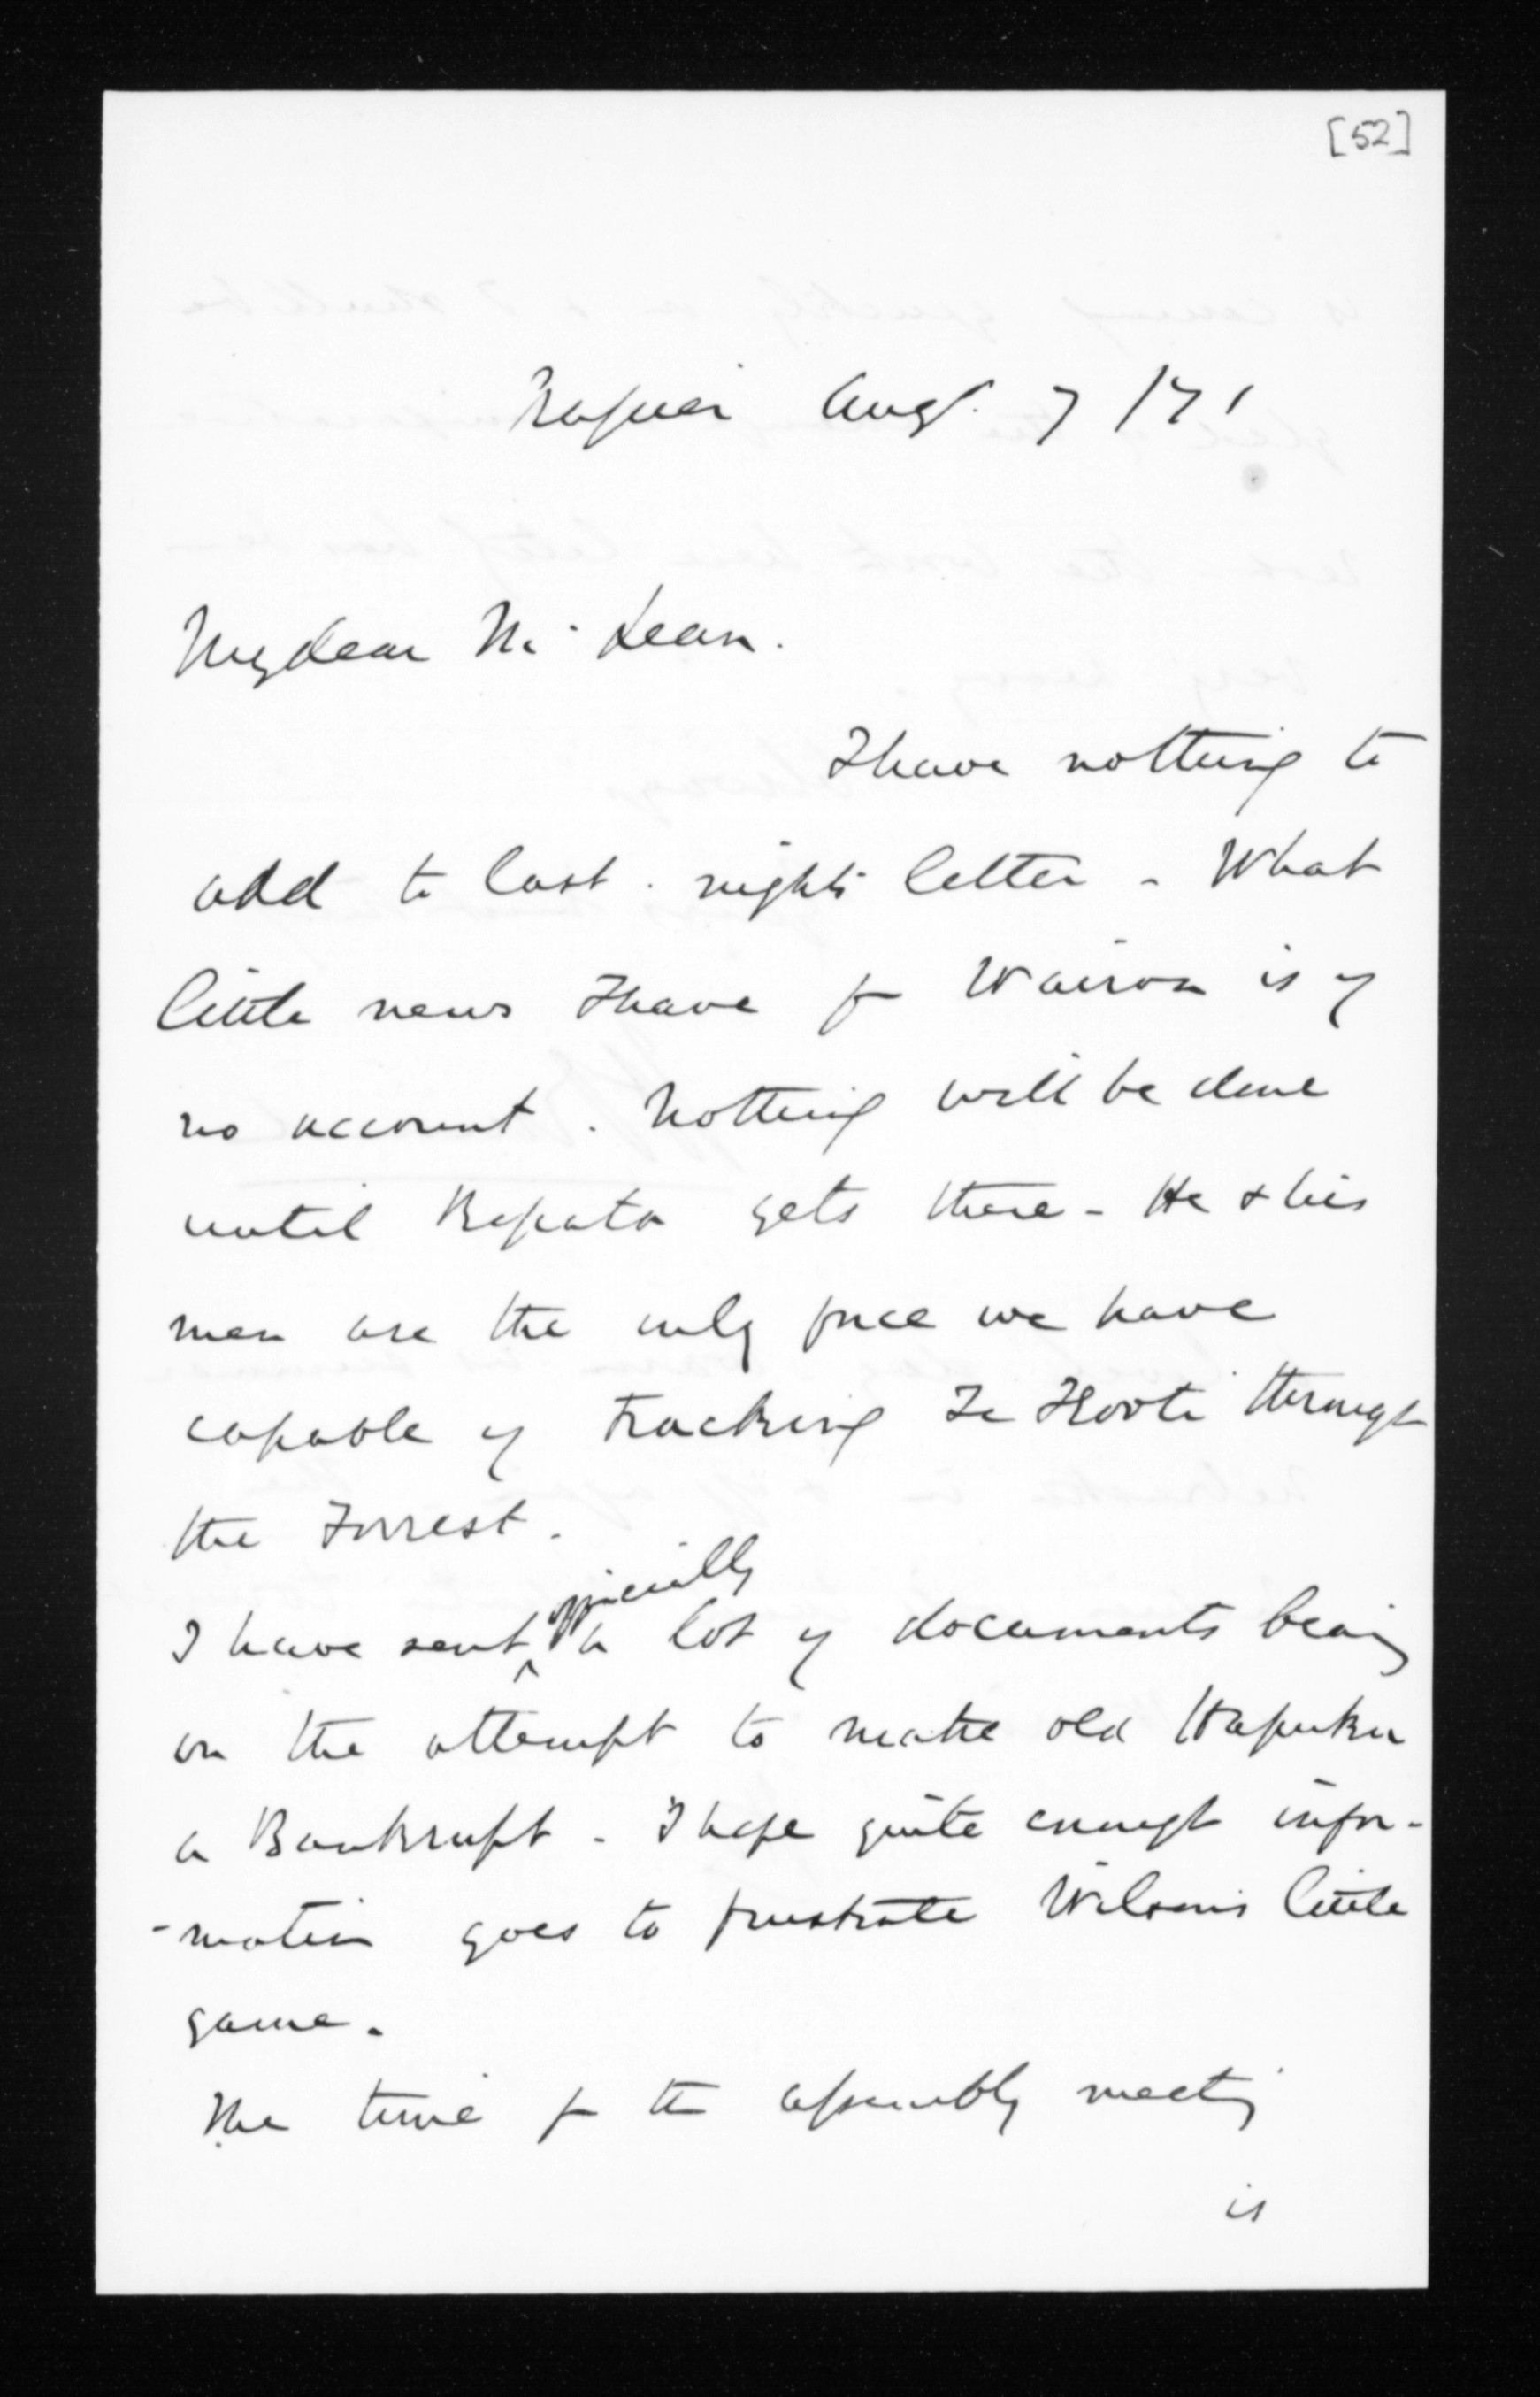 [52]
Napier Augt. 7 /71
My dear McLean.
I have nothing to
add to last nights letter - What
little news I have fr Wairoa is of
no account. Nothing will be done
until Ropata gets there - He & his
men are the only force we have
capable of tracking Te Kooti through
the Forrest.
I have sent officially a lot of documents bearing
on the attempt to make old Hapuku
a Bankrupt - I hope quite enough infor-
-mation goes to frustrate Wilson's little
game.
The time for the assembly meeting
is